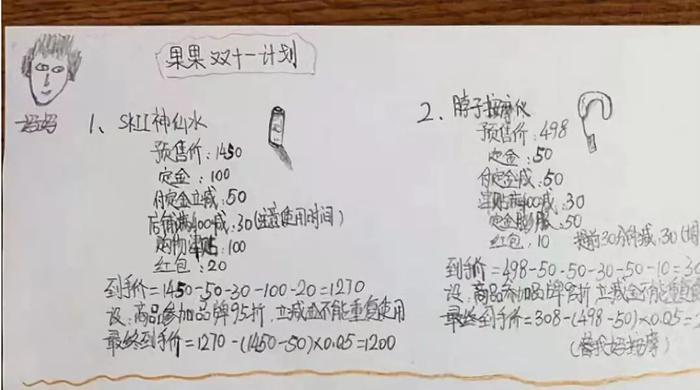 果果双十一计划
妈妈
1、SKII神仙水
预售价:1450
定金:100
付定金立减:50
店铺满400减:30(注意使用时间)
购物津贴:100
红包:20
到手价=1450-50-30-100-20=1270
设:商品参加品牌95折,立减金不能重复使用
最终到手价=1270-(1450-50)×0.05=1200
2、脖子按摩仪
预售价:498
定金:50
付定金减:50
津贴满400减:30
定金膨胀:50
红包:10 提前30分钟减:30(
到手价=498-50-50-30-50-10=30
设:商品参加品牌95折立减金不能重复
最终到手价=308-(498-50)×0.05=
(替我妈按摩)